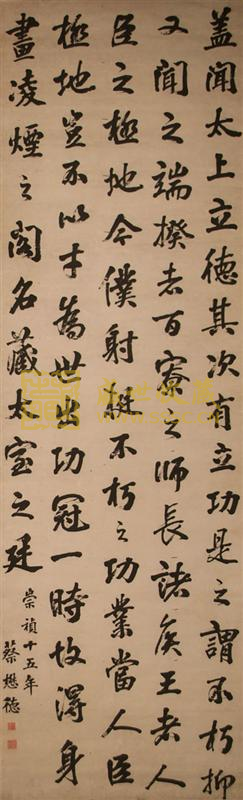 盖闻太上立德其次有立功是之謂不朽抑
又聞之端揆者百寮之師長諸侯王者人
臣之極地今僕射挺不朽之功業當人臣
極地豈不以才為世出功冠一時故得身
畫凌煙之閣名藏太室之廷
崇禎十五年
蔡懋德